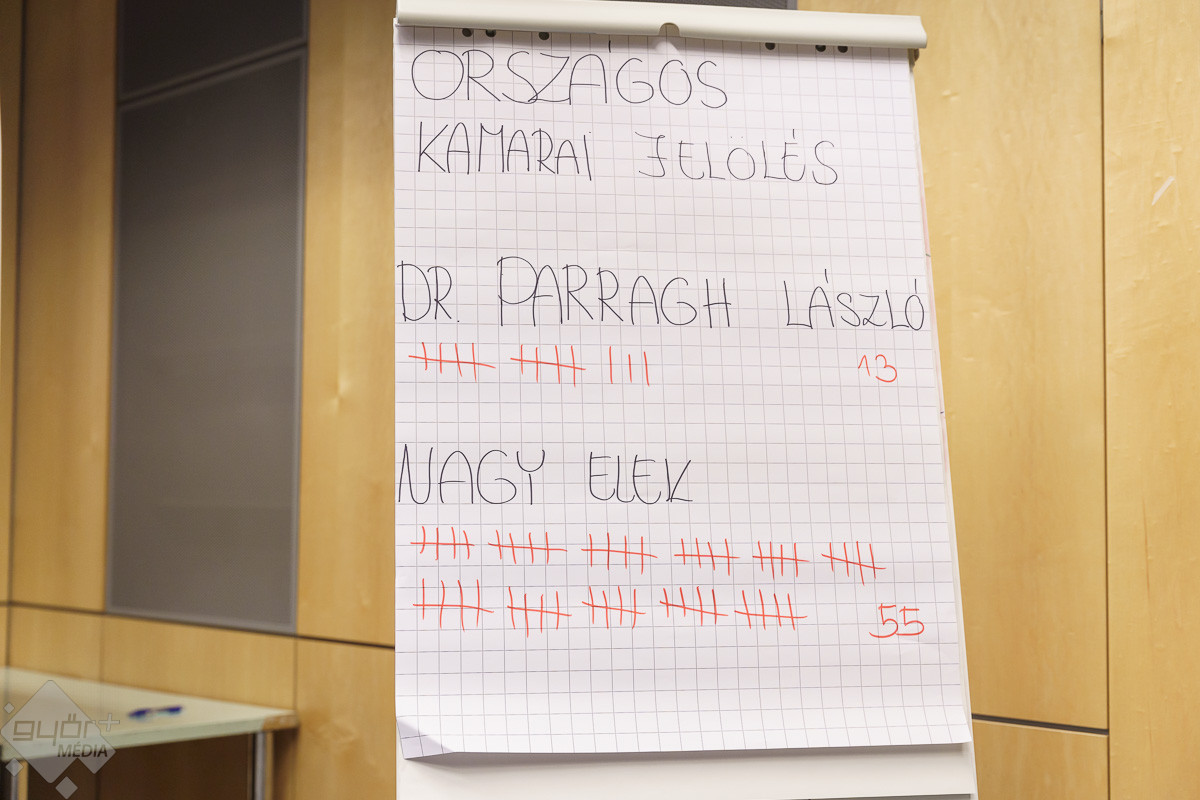 ORSZÁGOS
KAMARAI JELÖLÉS
DR. PARRAGH LÁSZLÓ
13
NAGY ELEK
55
győr+
MÉDIA